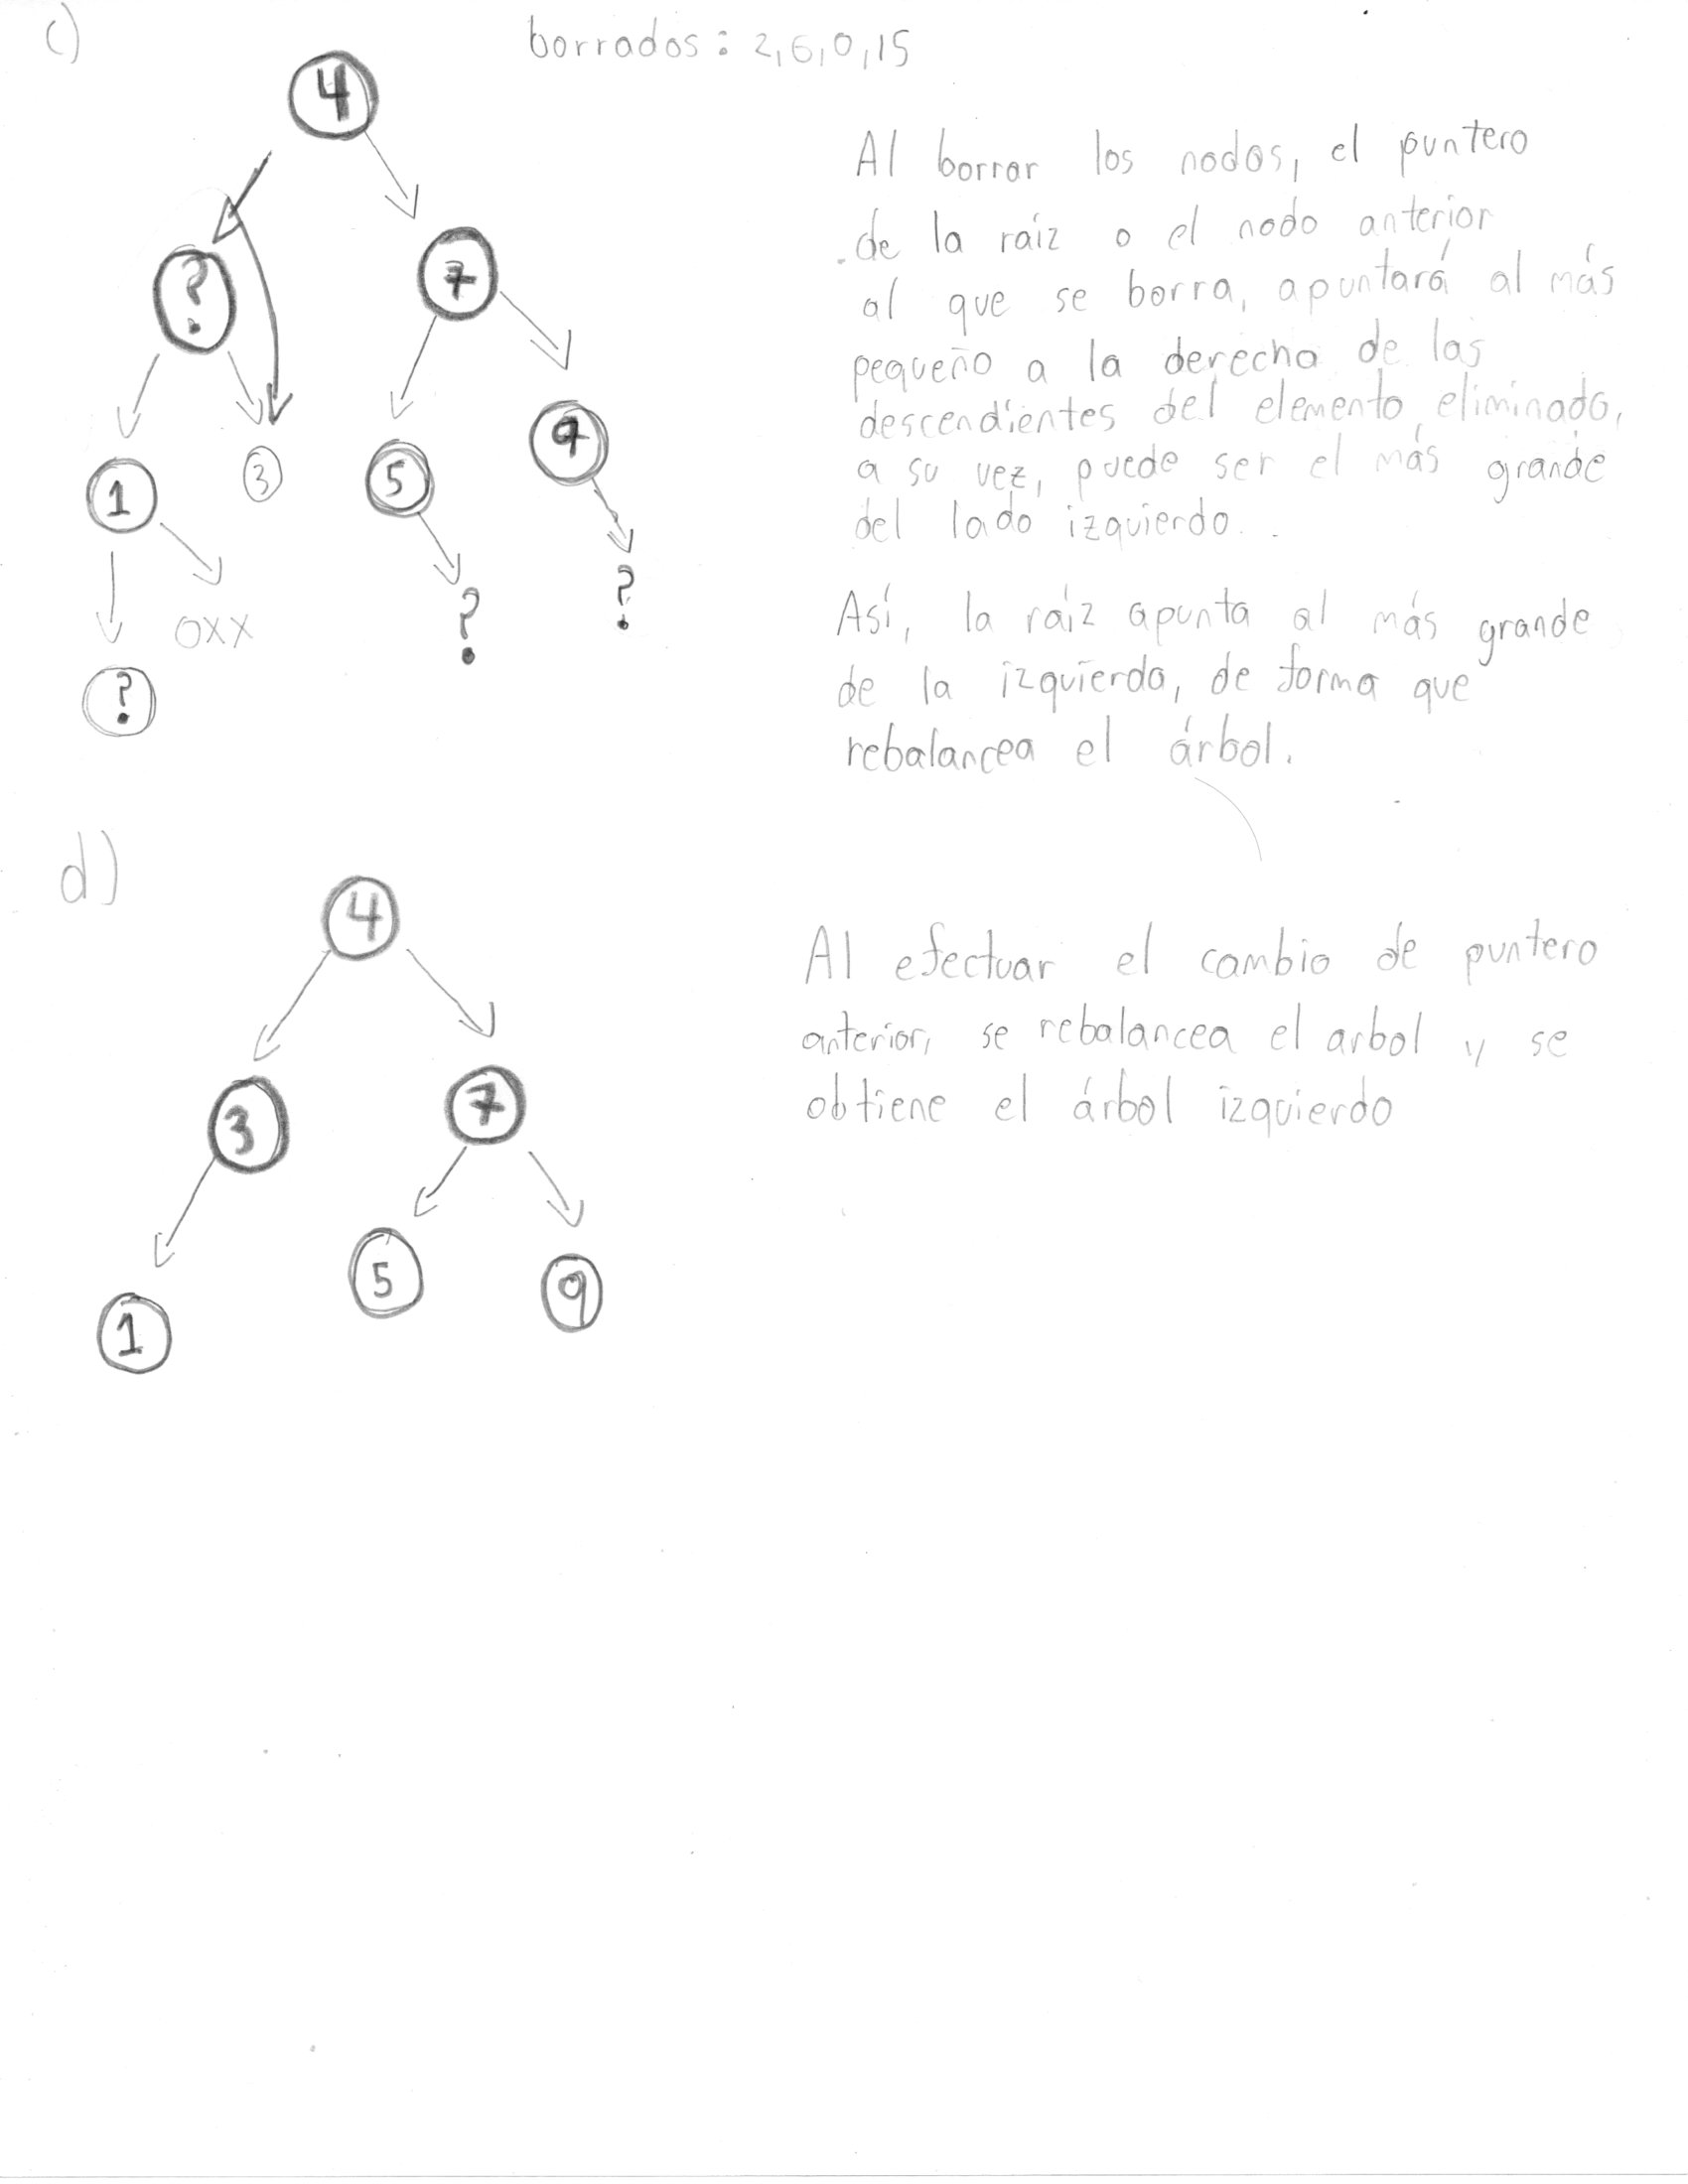 c)
borrados: 2,6,0,15
4
?
7
1
3
5
9
oxx
?
?
?
Al borrar los nodos, el puntero
de la raíz o el nodo anterior
al que se borra, apuntará al más
pequeño a la derecha de las
descendientes del elemento eliminado,
a su vez, puede ser el más grande
del lado izquierdo.
Así, la raíz apunta al más grande
de la izquierda, de forma que
rebalancea el árbol.
d)
4
3
7
1
5
9
Al efectuar el cambio de puntero
anterior, se rebalancea el arbol y se
obtiene el árbol izquierdo